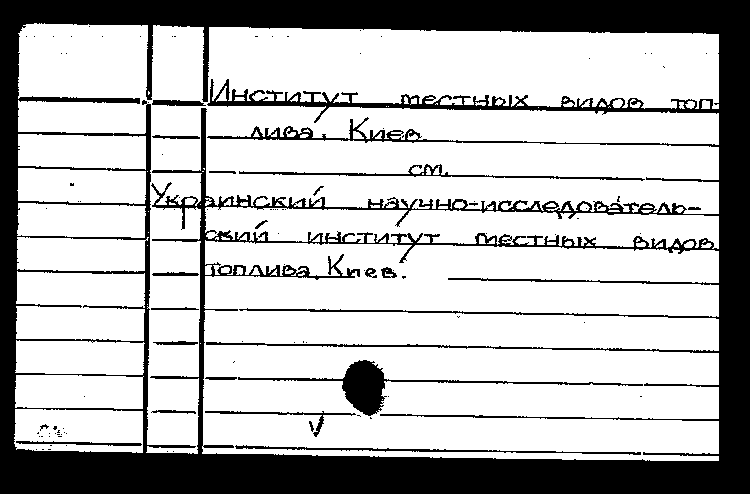 Институт местных видов топ-
лива. Киев.
см.
Украинский научно-исследователь-
ский институт местных видов
топлива. Киев.
V